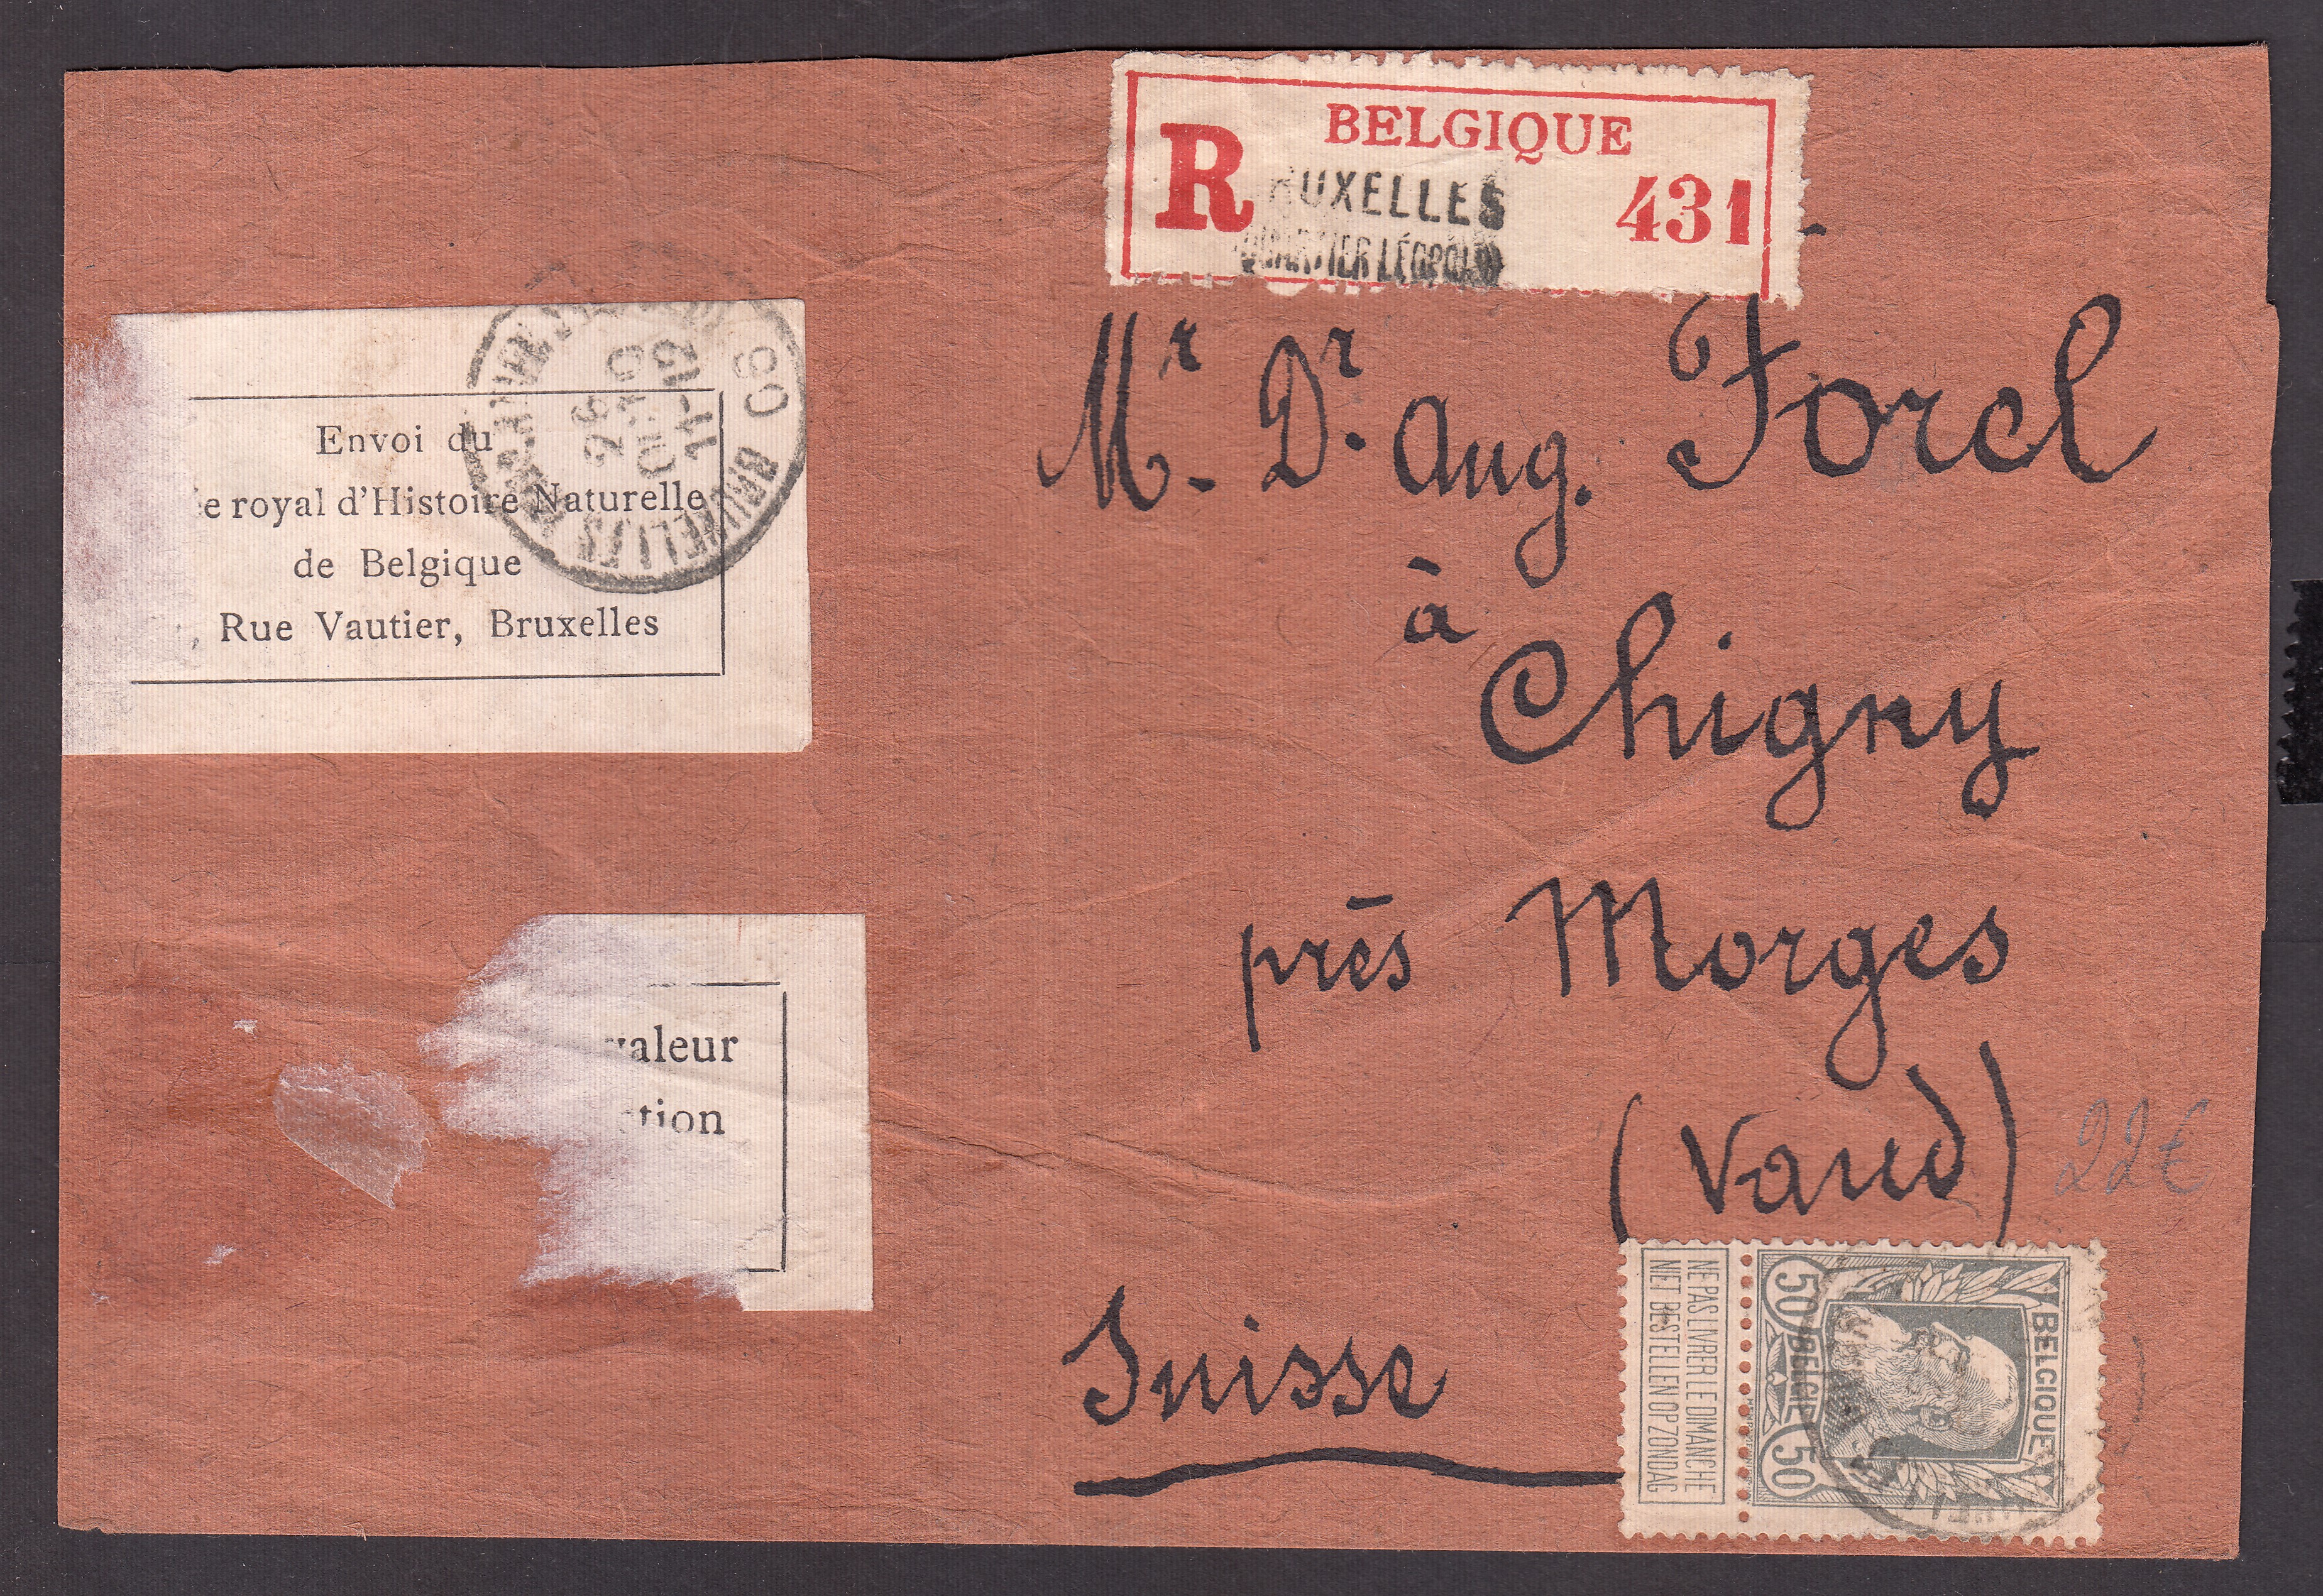 BELGIQUE
R
UXELLES
431
QUARTIER LÉOPOLD
Envoi du
e royal d'Histoire Naturelle
de Belgique
, Rue Vautier, Bruxelles
BRUXELLES
Mr. Dr. Aug. Forel
à
Chigny
près Morges
(Vaud)
22€
valeur
tion
Suisse
NE PAS LIVRER LE DIMANCHE
NIET BESTELLEN OP ZONDAG
BELGIQUE
50 BELGIË 50